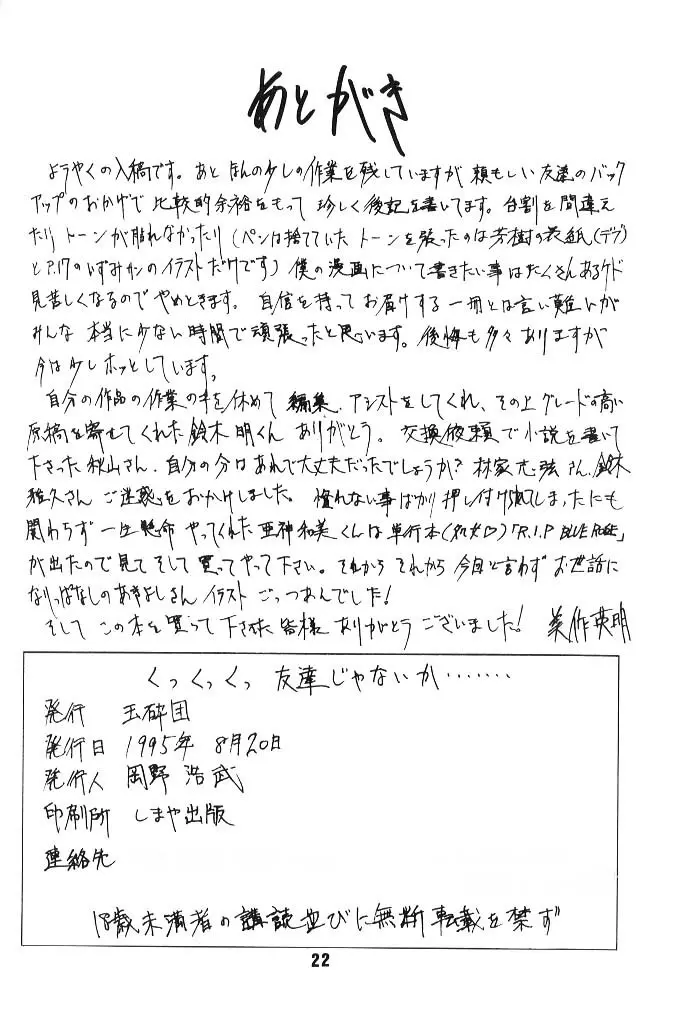 あとがき
ようやくの入稿です。あと ほんの少しの作業を残していますが 頼もしい友達のバック
アップのおかげで 比較的余裕をもって 珍しく後記を書いてます。台割を間違え
たり トーンが貼れなかったり (ペンは捨てていた トーンを張ったのは芳樹の表紙(デブ)
とP.17のいずみかのイラストだけです) 僕の漫画について書きたい事はたくさんあるケド
見苦しくなるのでやめときます。 自信を持ってお届けする一冊とは言い難いが
みんな 本当に少ない時間で頑張ったと思います。後悔も多々ありますが
今は少しホッとしています。
自分の作品の作業の手を休めて 編集、アシストをしてくれ、その上グレードの高い
原稿を寄せてくれた鈴木明くん ありがとう。 交換依頼で小説を書いて
下さった秋山さん、自分の分はあれで大丈夫だったでしょうか? 林家志弦さん、鈴木
雅久さん ご迷惑をおかけしました。 慣れない事ばかり押し付けられてしまったにも
関わらず 一生懸命 やってくれた亜神和美くんは単行本(処女♡)「R.I.P BLUE ROSE」
が出たので見て そして 買ってやって下さい。それから それから 今回と言わず お世話に
なりっぱなしのあきよしさん イラスト ごっつあんでした!
そして この本を買って下さった 皆様 ありがとうございました! 美作英明
くっくっくっ 友達じゃないか・・・・・・・
発行 玉砕団
発行日 1995年 8月20日
発行人 岡野 浩武
印刷所 しまや出版
連絡先
18歳未満者の講読並びに無断転載を禁ず
22